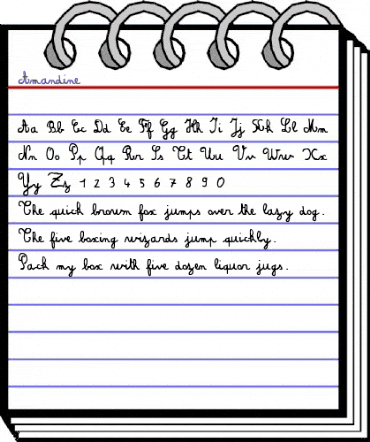 Amandine
Aa Bb Cc Dd Ee Ff Gg Hh Ii Jj Kk Ll Mm
Nn Oo Pp Qq Rr Ss Tt Uu Vv Ww Xx
Yy Zz 1 2 3 4 5 6 7 8 9 0
The quick brown fox jumps over the lazy dog.
The five boxing wizards jump quickly.
Pack my box with five dozen liquor jugs.